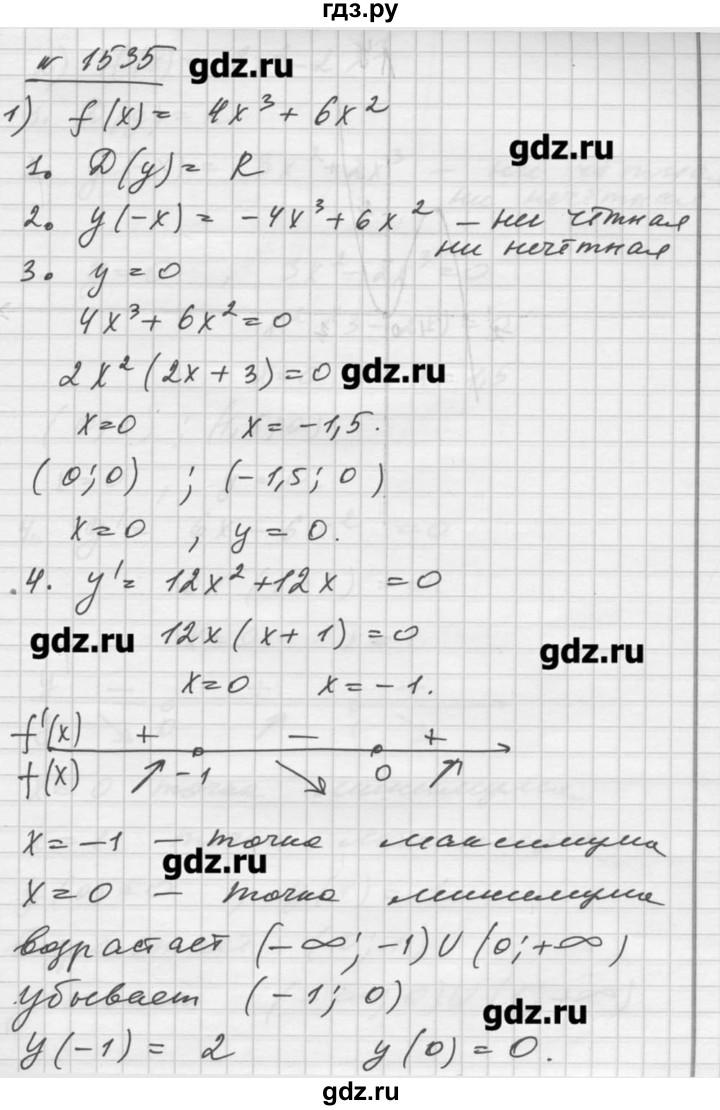 гдз.ру
№ 1535 gdz.ru
1) f(x) = 4x³ + 6x²
gdz.ru
1. D(y) = R
2. y(-x) = -4x³ + 6x² – ни чётная
ни нечётная
3. y = 0
4x³ + 6x² = 0
2x² (2x + 3) = 0 gdz.ru
x = 0 x = -1,5.
(0; 0) ; (-1,5; 0)
x = 0 , y = 0.
4. y' = 12x² + 12x = 0
gdz.ru 12x (x + 1) = 0 gdz.ru
x = 0 x = -1.
f'(x) + – +
f(x) ↗ -1 ↘ 0 ↗
x = -1 – точка максимума
gdz.ru
x = 0 – точка минимума
возрастает (-∞; -1) U (0; +∞)
убывает (-1; 0)
gdz.ru
y(-1) = 2 y(0) = 0.
gdz.ru